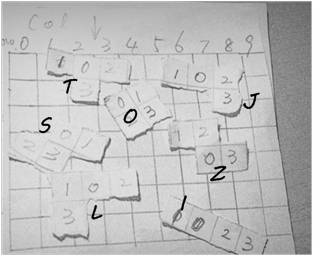 Col ↓
no.0 1 2 3 4 5 6 7 8 9
1 0 2
3
T
1 0 2
3
J
0 1
3
O
S
0 1
2 3
1 2
0 3
Z
1 0 2
3
L
I
0 0 2 3 1